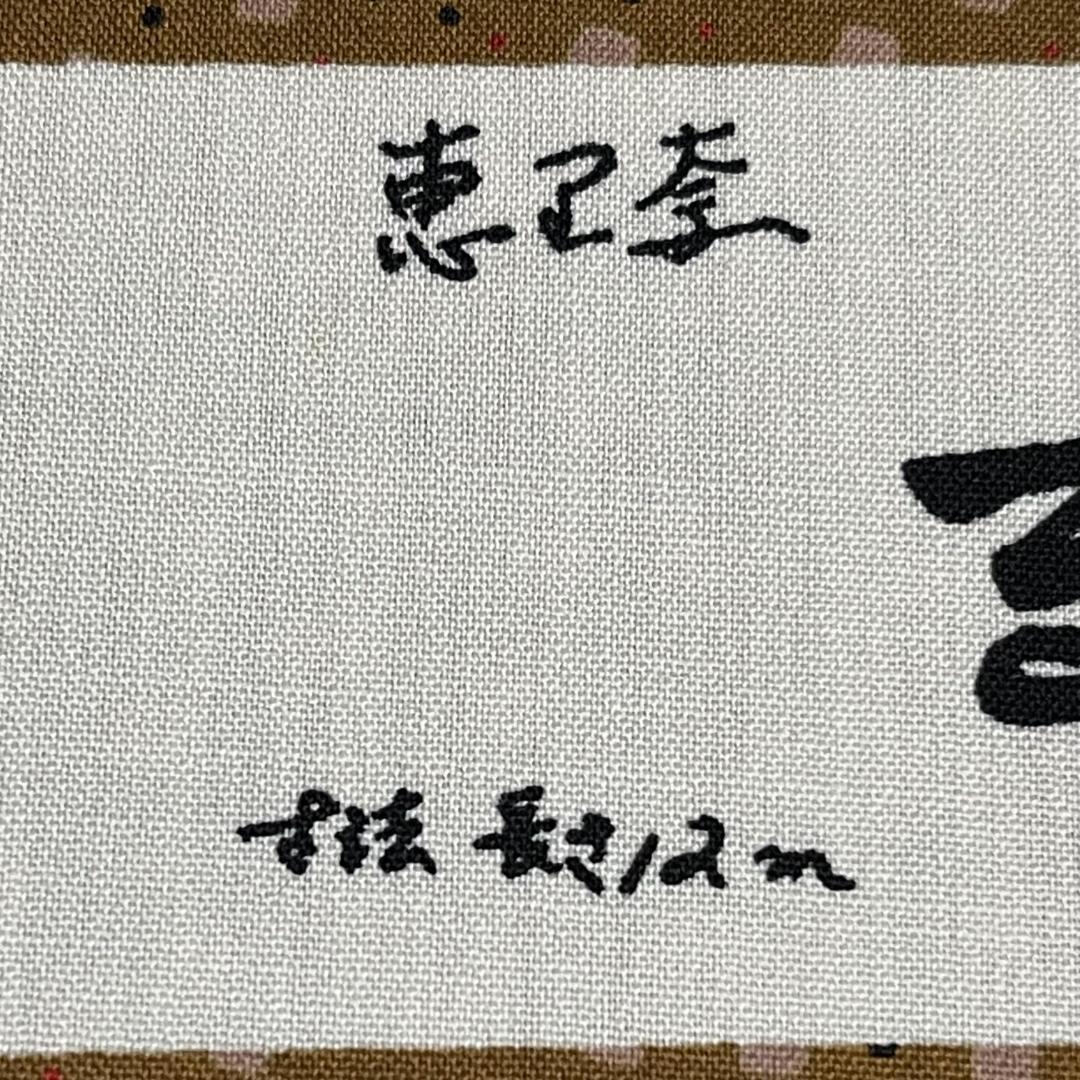 恵里奈
寸法 長さ12m